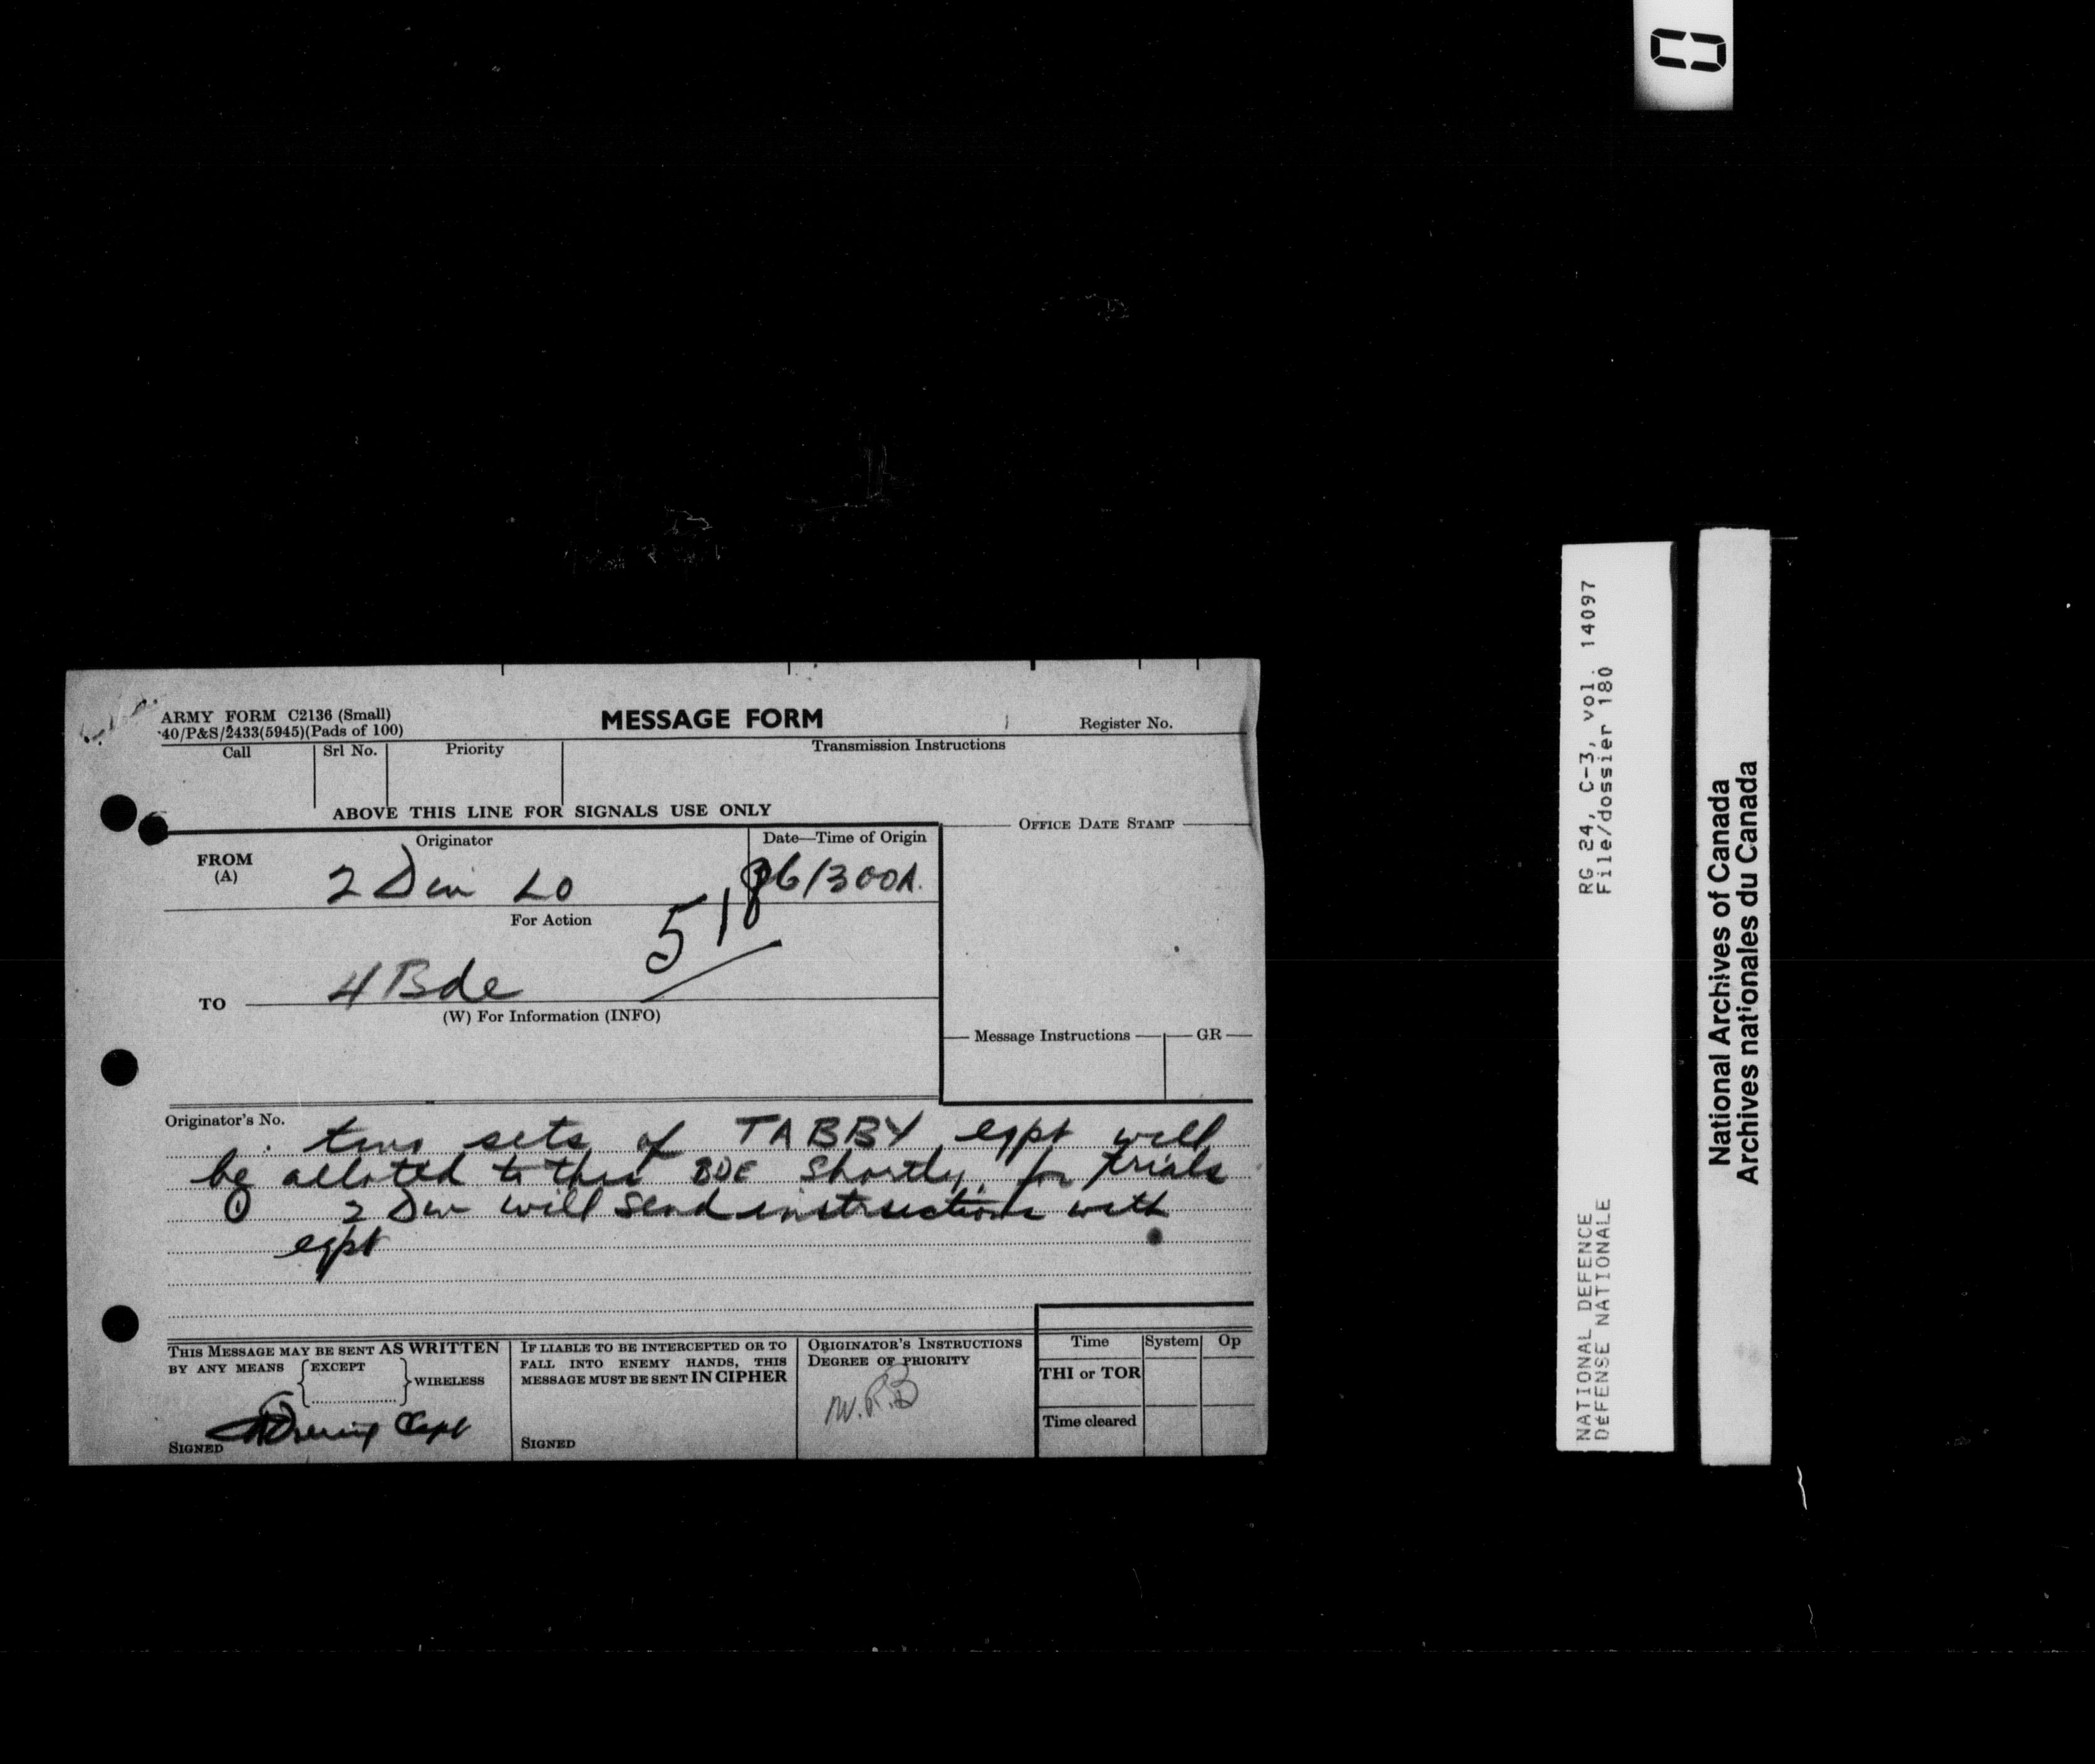 ARMY FORM C2136 (Small)
40/P&S/2433(5945)(Pads of 100)
MESSAGE FORM
Register No.
Call
Srl No.
Priority
Transmission Instructions
ABOVE THIS LINE FOR SIGNALS USE ONLY
OFFICE DATE STAMP
FROM
(A)
Originator
2 Div LO
Date—Time of Origin
061300A.
For Action
518
TO
4 Bde
(W) For Information (INFO)
Message Instructions
GR
Originator's No.
two sets of TABBY eqpt will
be alloted to this BDE shortly, for trials
2 Div will send instructions with
eqpt
THIS MESSAGE MAY BE SENT AS WRITTEN
BY ANY MEANS { EXCEPT } WIRELESS
SIGNED Capt
IF LIABLE TO BE INTERCEPTED OR TO
FALL INTO ENEMY HANDS, THIS
MESSAGE MUST BE SENT IN CIPHER
SIGNED
ORIGINATOR'S INSTRUCTIONS
DEGREE OF PRIORITY
W.R.B
Time
System
Op
THI or TOR
Time cleared
RG 24, C-3, vol. 14097
File/dossier 180
NATIONAL DEFENCE
DÉFENSE NATIONALE
National Archives of Canada
Archives nationales du Canada